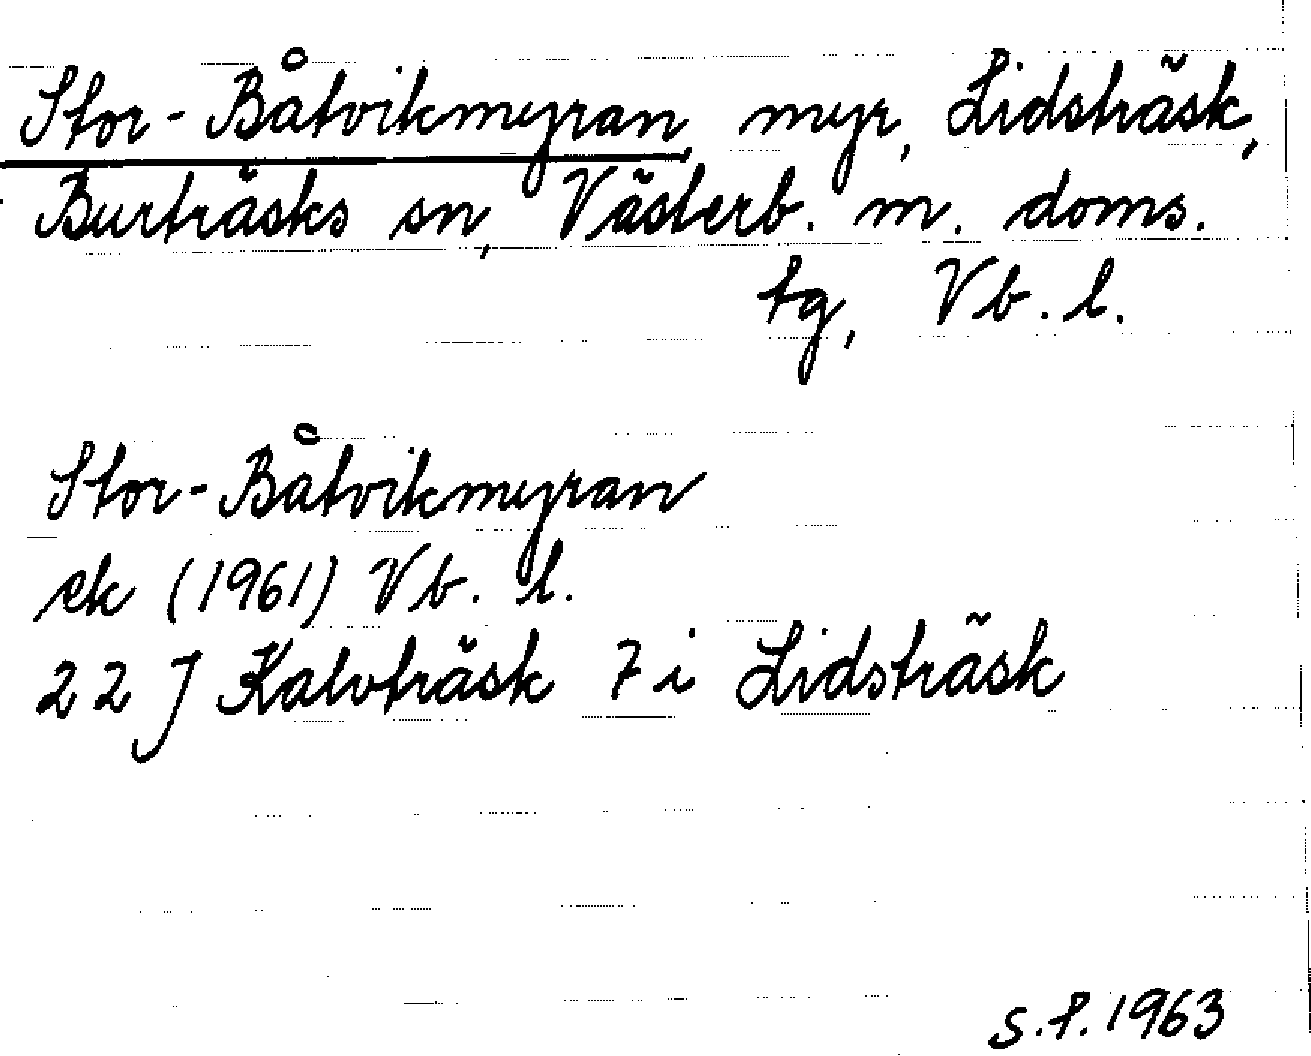 Stor-Båtvikmyran, myr, Lidsträsk,
Burträsks sn, Västerb. m. doms.
tg, Vb. l.
Stor-Båtvikmyran
ek (1961) Vb. l.
22 J Kalvträsk 7 i Lidsträsk
S.f. 1963